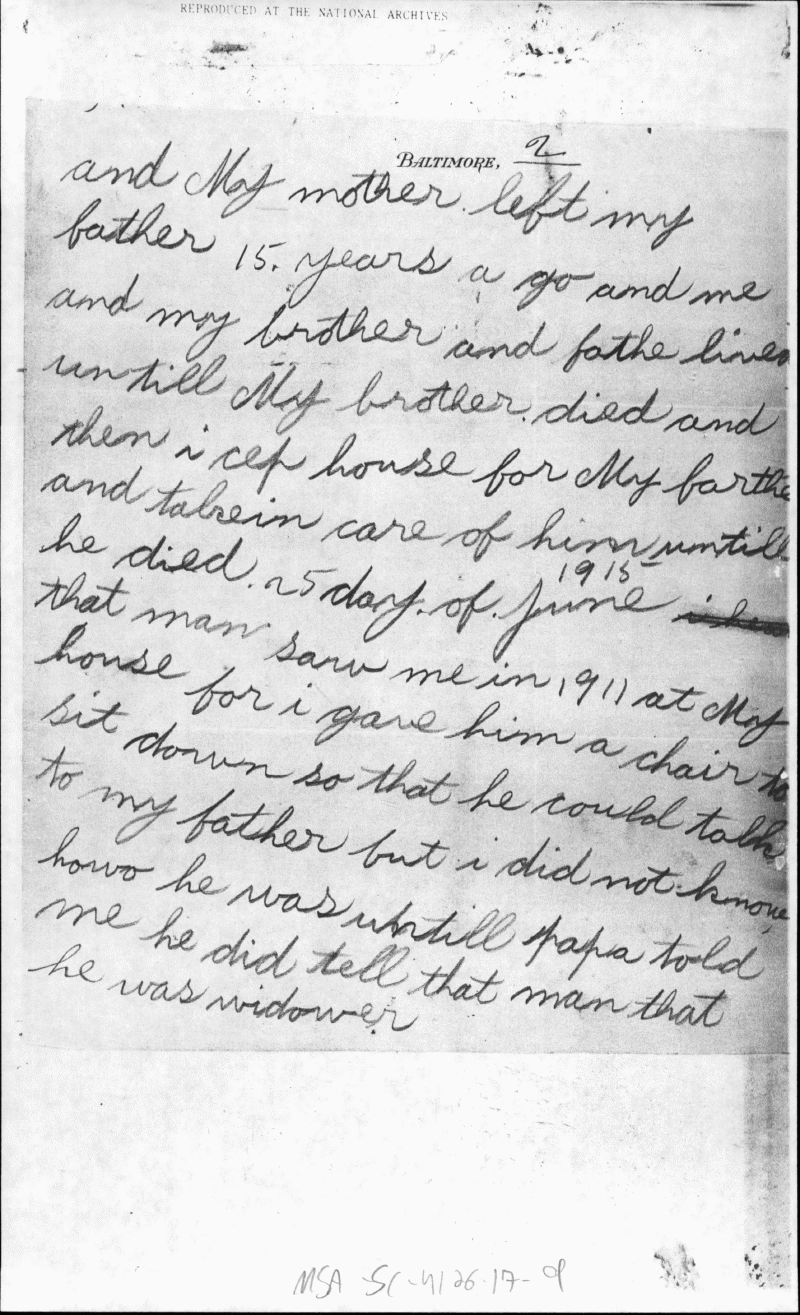 REPRODUCED AT THE NATIONAL ARCHIVES
BALTIMORE, 2
and My mother. left my
father 15. years a go and me
and my brother and fathe lives
untill My brother. died and
then i cep house for My farthe
and takein care of him untill
he died. 25 day. of. June 1915
that man saw me in 1911 at My
house for i gave him a chair to
sit down so that he could talk
to my father but i did not know
howo he was untill papa told
me he did tell that man that
he was widower
MSA SC-4126-17-9